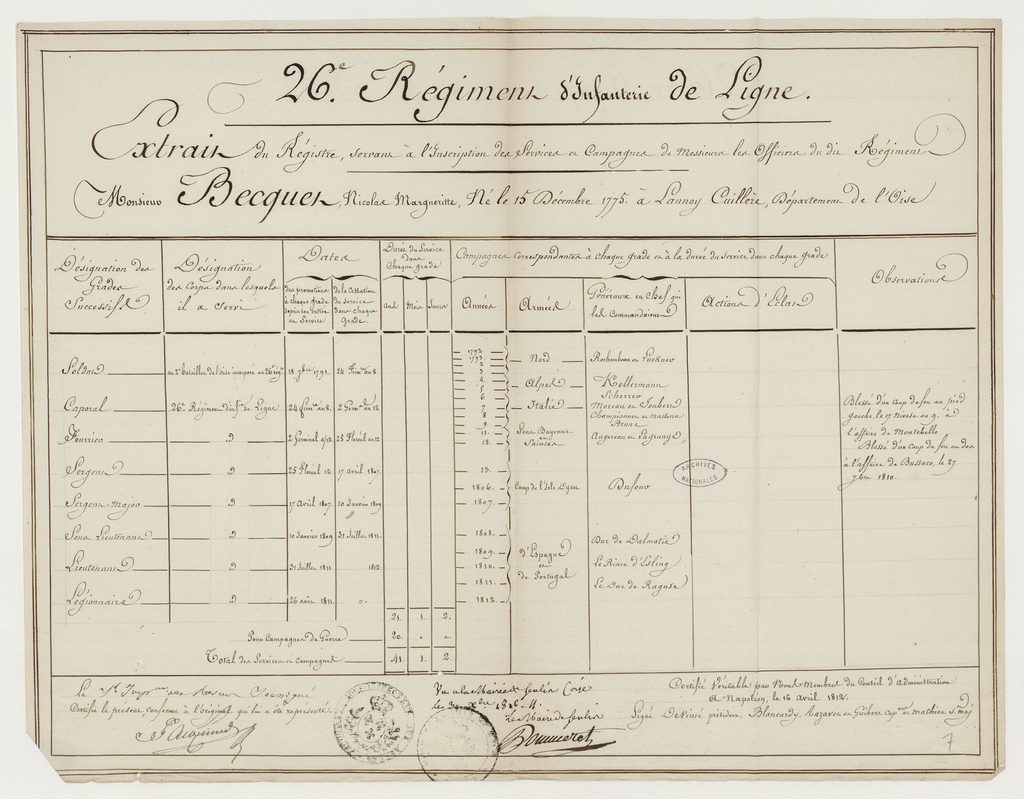 26.e Régiment d'Infanterie de Ligne.
Extrait du Régistre, servant à l'Inscription des Services et Campagnes de Messieurs les Officiers du dit Régiment
Monsieur Becquet, Nicolas Margueritte, Né le 15 Décembre 1775. à Lannoy Cuillère, Département de l'Oise
Désignation des Grades Successifs
Désignation des Corps dans lesquels il a servi
Dates
des promotions à chaque grade depuis son entrée au Service
de la Cessation du service dans chaque Grade.
Durée du Service dans Chaque grade
ans Mois Jours
Campagnes correspondantes à chaque grade et à la durée du service dans chaque grade
Années
Armées
Généraux en Chef qui les Commandaient
Actions d'Eclat
Observations
Soldat au 2e bataillon de l'oise incorporé au 26e régt 18 7bre 1793. 24 frim. an 8
Caporal 26e Régiment d'inf.ie de Ligne 24 frim. an 8. 2 Germ. an 12
Fourrier d 2 Germinal an 12 25 floréal an 12
Sergent d 25 floréal 12 17 avril 1807.
Sergent-Major d 17 Avril 1807. 10 Janvier 1809
Sous Lieutenant d 10 Janvier 1809 31 Juillet 1811.
Lieutenant d 31 Juillet 1811 1812.
Légionnaire d 26 août 1811 "
1792
1793
2
3
4
5
6
7
8
9
11
12.
13.
1806.
1807.
1808.
1809.
1810.
1811.
1812.
Nord Rochambeau et Luckner
Alpes Kellermann
Italie Scherrer
Moreau et Joubert
Championnet et Massena
Brune
Sous Bayonne et Saintes Augereau et Lagrange
Camp de l'Isle Dyeu Dufour
d'Espagne et de Portugal
Duc de Dalmatie
Le Prince d'Esling
Le Duc de Raguse
Blessé d'un Coup de feu au pied
gauche le 17 Messe an 9. à
l'affaire de Montebello
Blessé d'un Coup de feu au dos
à l'affaire de Bussaco, le 27
7bre 1810.
ARCHIVES NATIONALES
21. 1. 2.
Pour Campagnes de Guerre 20. " "
Total des Services et Campagnes 41. 1. 2.
Certifie le présent, conforme à l'original qui lui a été représenté.
Vu a la Mairie de
Le Maire de
Certifié Véritable par Nous Membres du Conseil d'Administration
A Napoléon, le 16 avril 1812.
Signé Devine président, Blancardy, Lazavon et Guibert Cap.nes et Mathieu S. maj
7